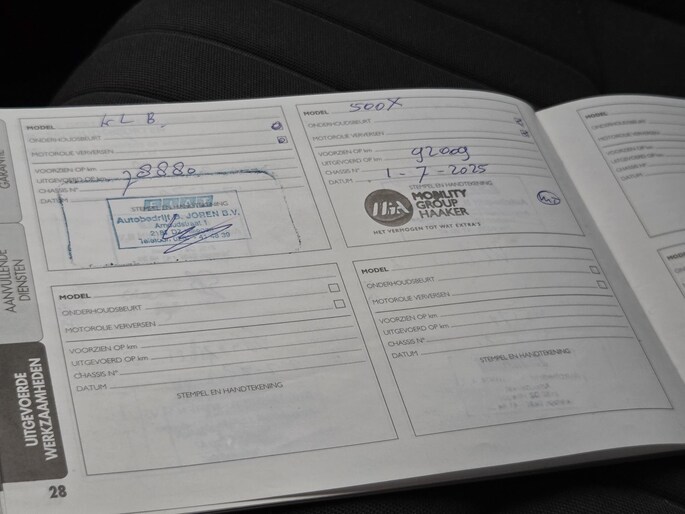 MODEL
ONDERHOUDSBEURT
MOTOROLIE VERVERSEN
VOORZIEN OP km
UITGEVOERD OP km 78880
CHASSIS N°
DATUM
FIAT
STEMPEL EN HANDTEKENING
Autobedrijf B. JOREN B.V.
MODEL 500X
ONDERHOUDSBEURT
MOTOROLIE VERVERSEN
VOORZIEN OP km
UITGEVOERD OP km 92009
CHASSIS N°
DATUM 1-7-2025
STEMPEL EN HANDTEKENING
MOBILITY
GROUP
HAAKER
HET VERMOGEN TOT WAT EXTRA'S
MODEL
ONDERHOUDSBEURT
MOTOROLIE VERVERSEN
VOORZIEN OP km
UITGEVOERD OP km
CHASSIS N°
DATUM
STEMPEL EN HANDTEKENING
MODEL
ONDERHOUDSBEURT
MOTOROLIE VERVERSEN
VOORZIEN OP km
UITGEVOERD OP km
CHASSIS N°
DATUM
STEMPEL EN HANDTEKENING
MODEL
ONDERHOUDSBEURT
MOTOROLIE
VOORZIEN OP
UITGEVOERD
CHASSIS N°
DATUM
GARANTIE
AANVULLENDE
DIENSTEN
UITGEVOERDE
WERKZAAMHEDEN
28